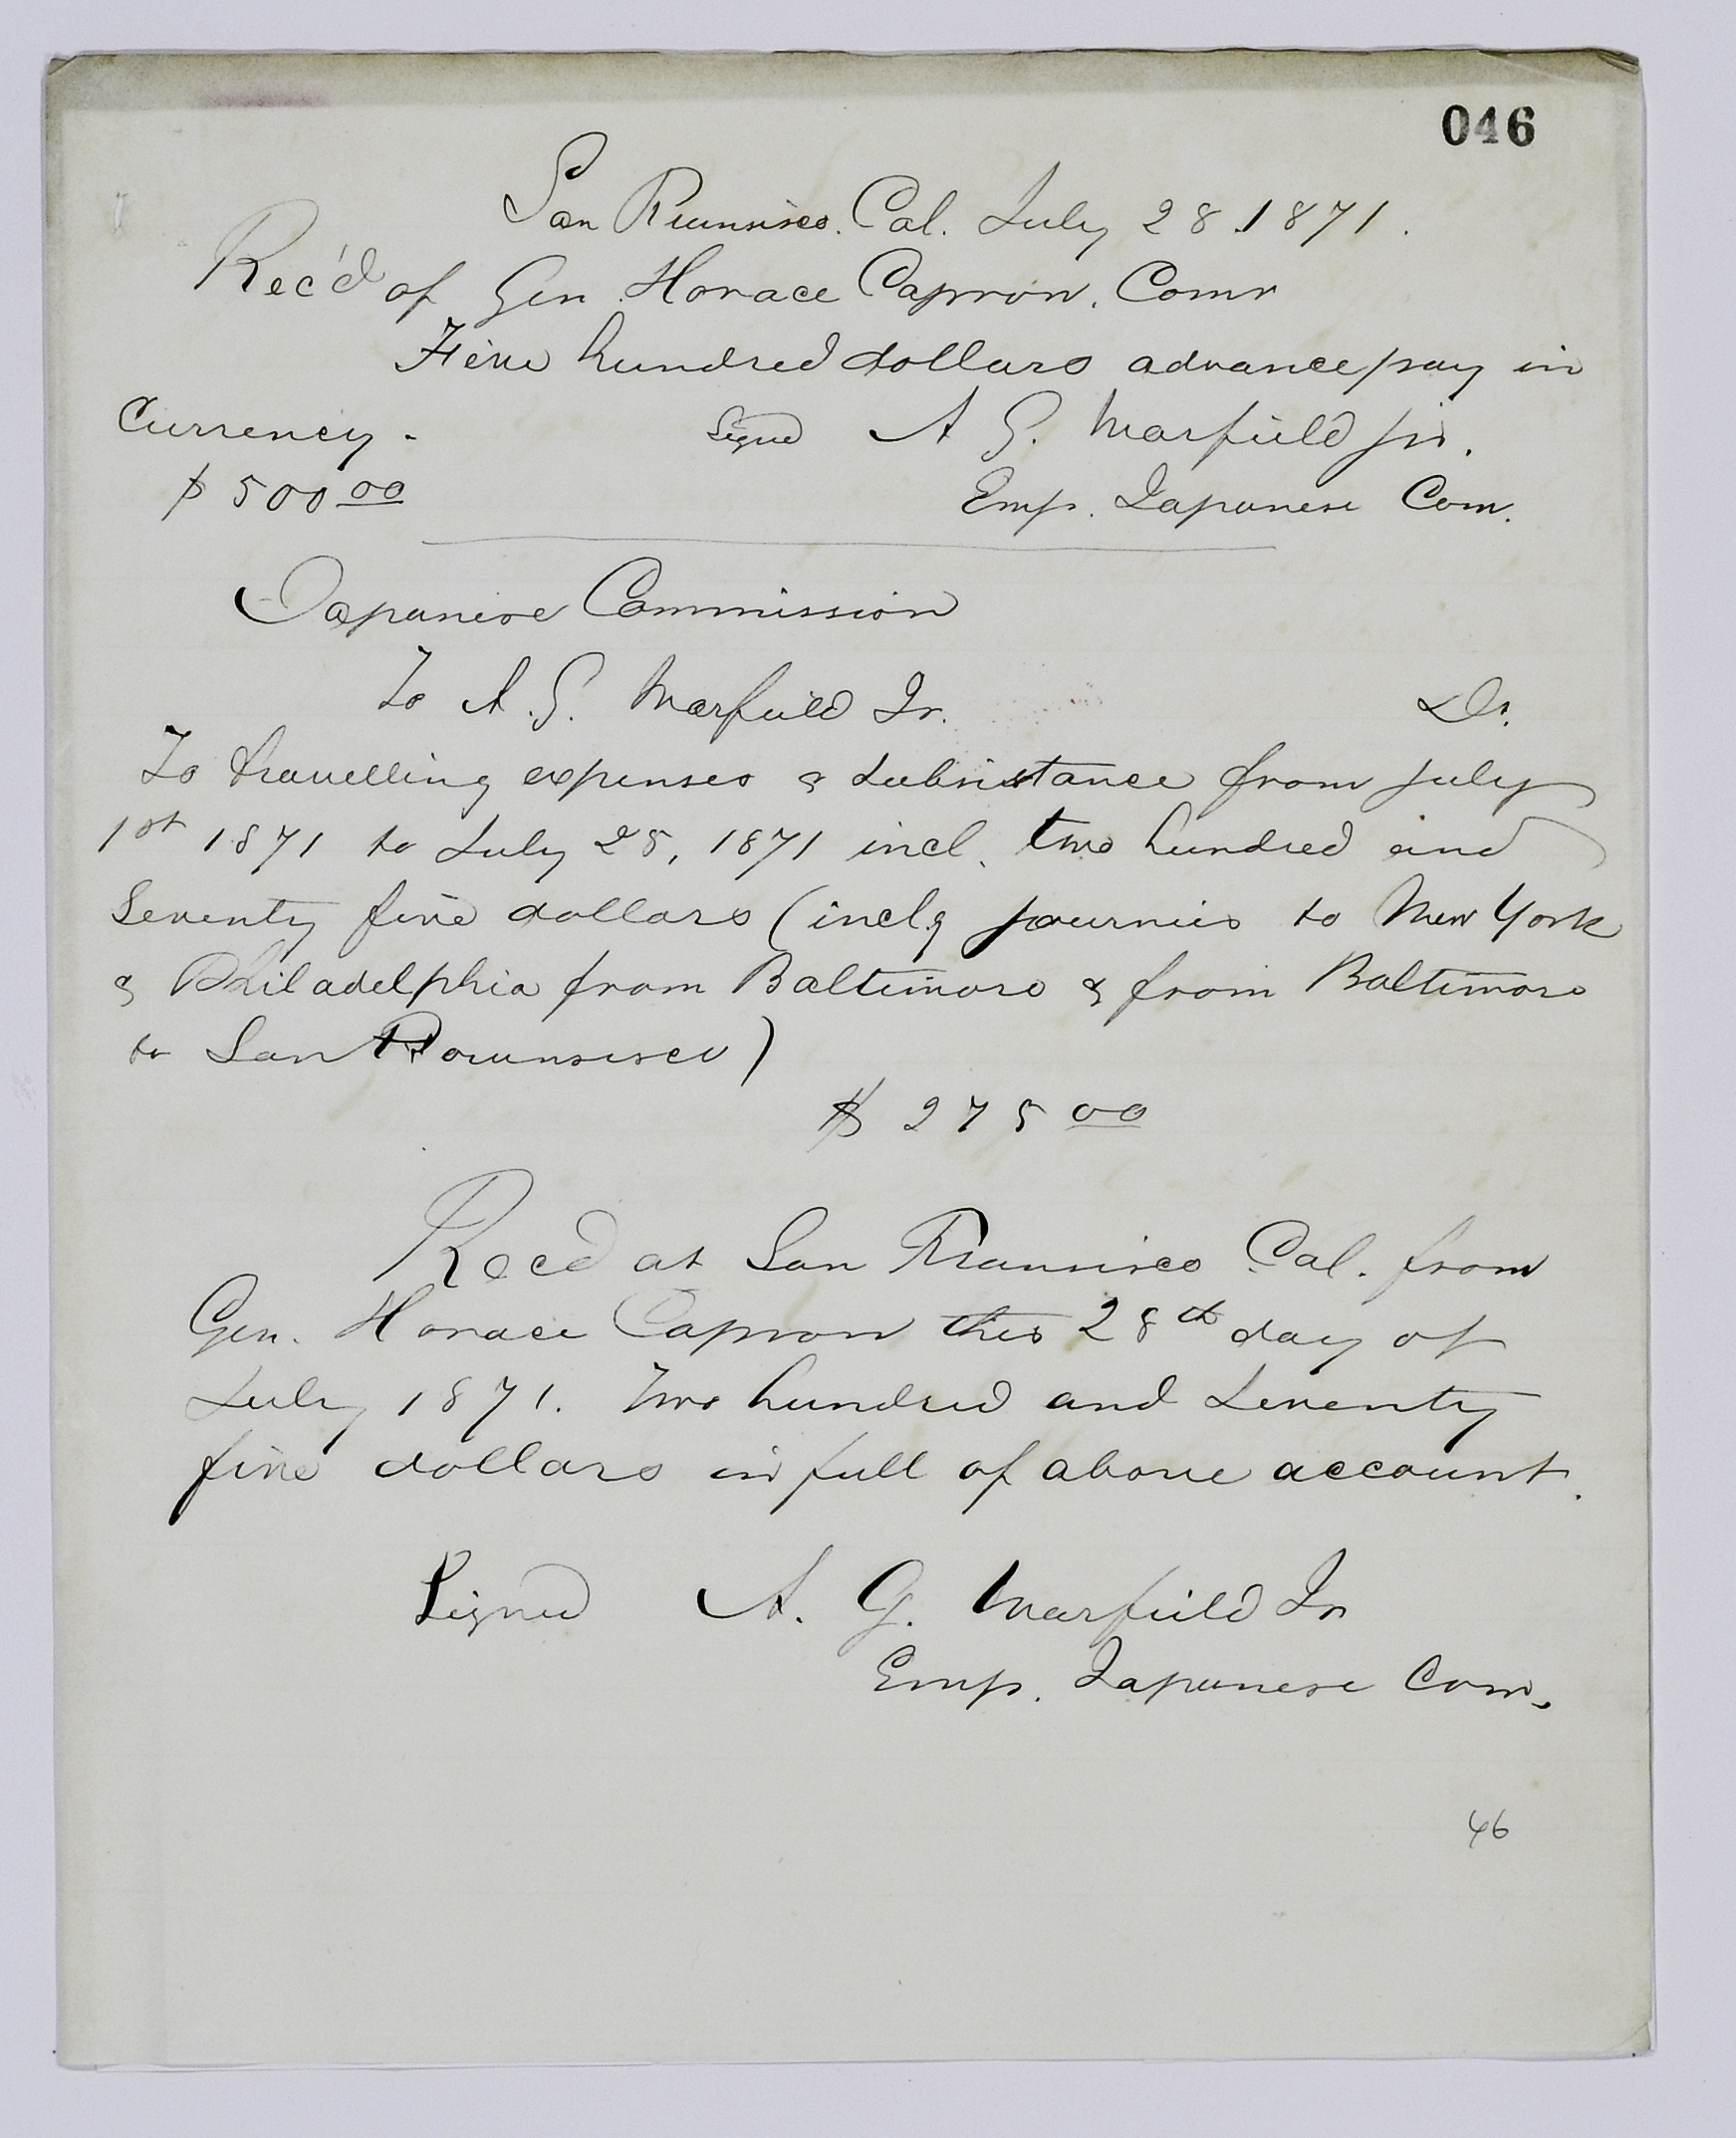 046
San Francisco. Cal. July 28. 1871.
Rec'd of Gen. Horace Capron. Comr
Five hundred dollars advance pay in
Currency.
Signed A G. Warfield Jr.
$500 00
Emp. Japanese Com.
Japanese Commission
To A. G. Warfield Jr. Dr.
To travelling expenses & subsistance from July
1st 1871 to July 28, 1871 incl. two hundred and
Seventy five dollars (inclg journies to New York
& Philadelphia from Baltimore & from Baltimore
to San Francisco)
$275 00
Recd at San Francisco Cal. from
Gen. Horace Capron this 28th day of
July 1871. Two hundred and Seventy
five dollars in full of above account.
Signed A. G. Warfield Jr
Emp. Japanese Com.
46